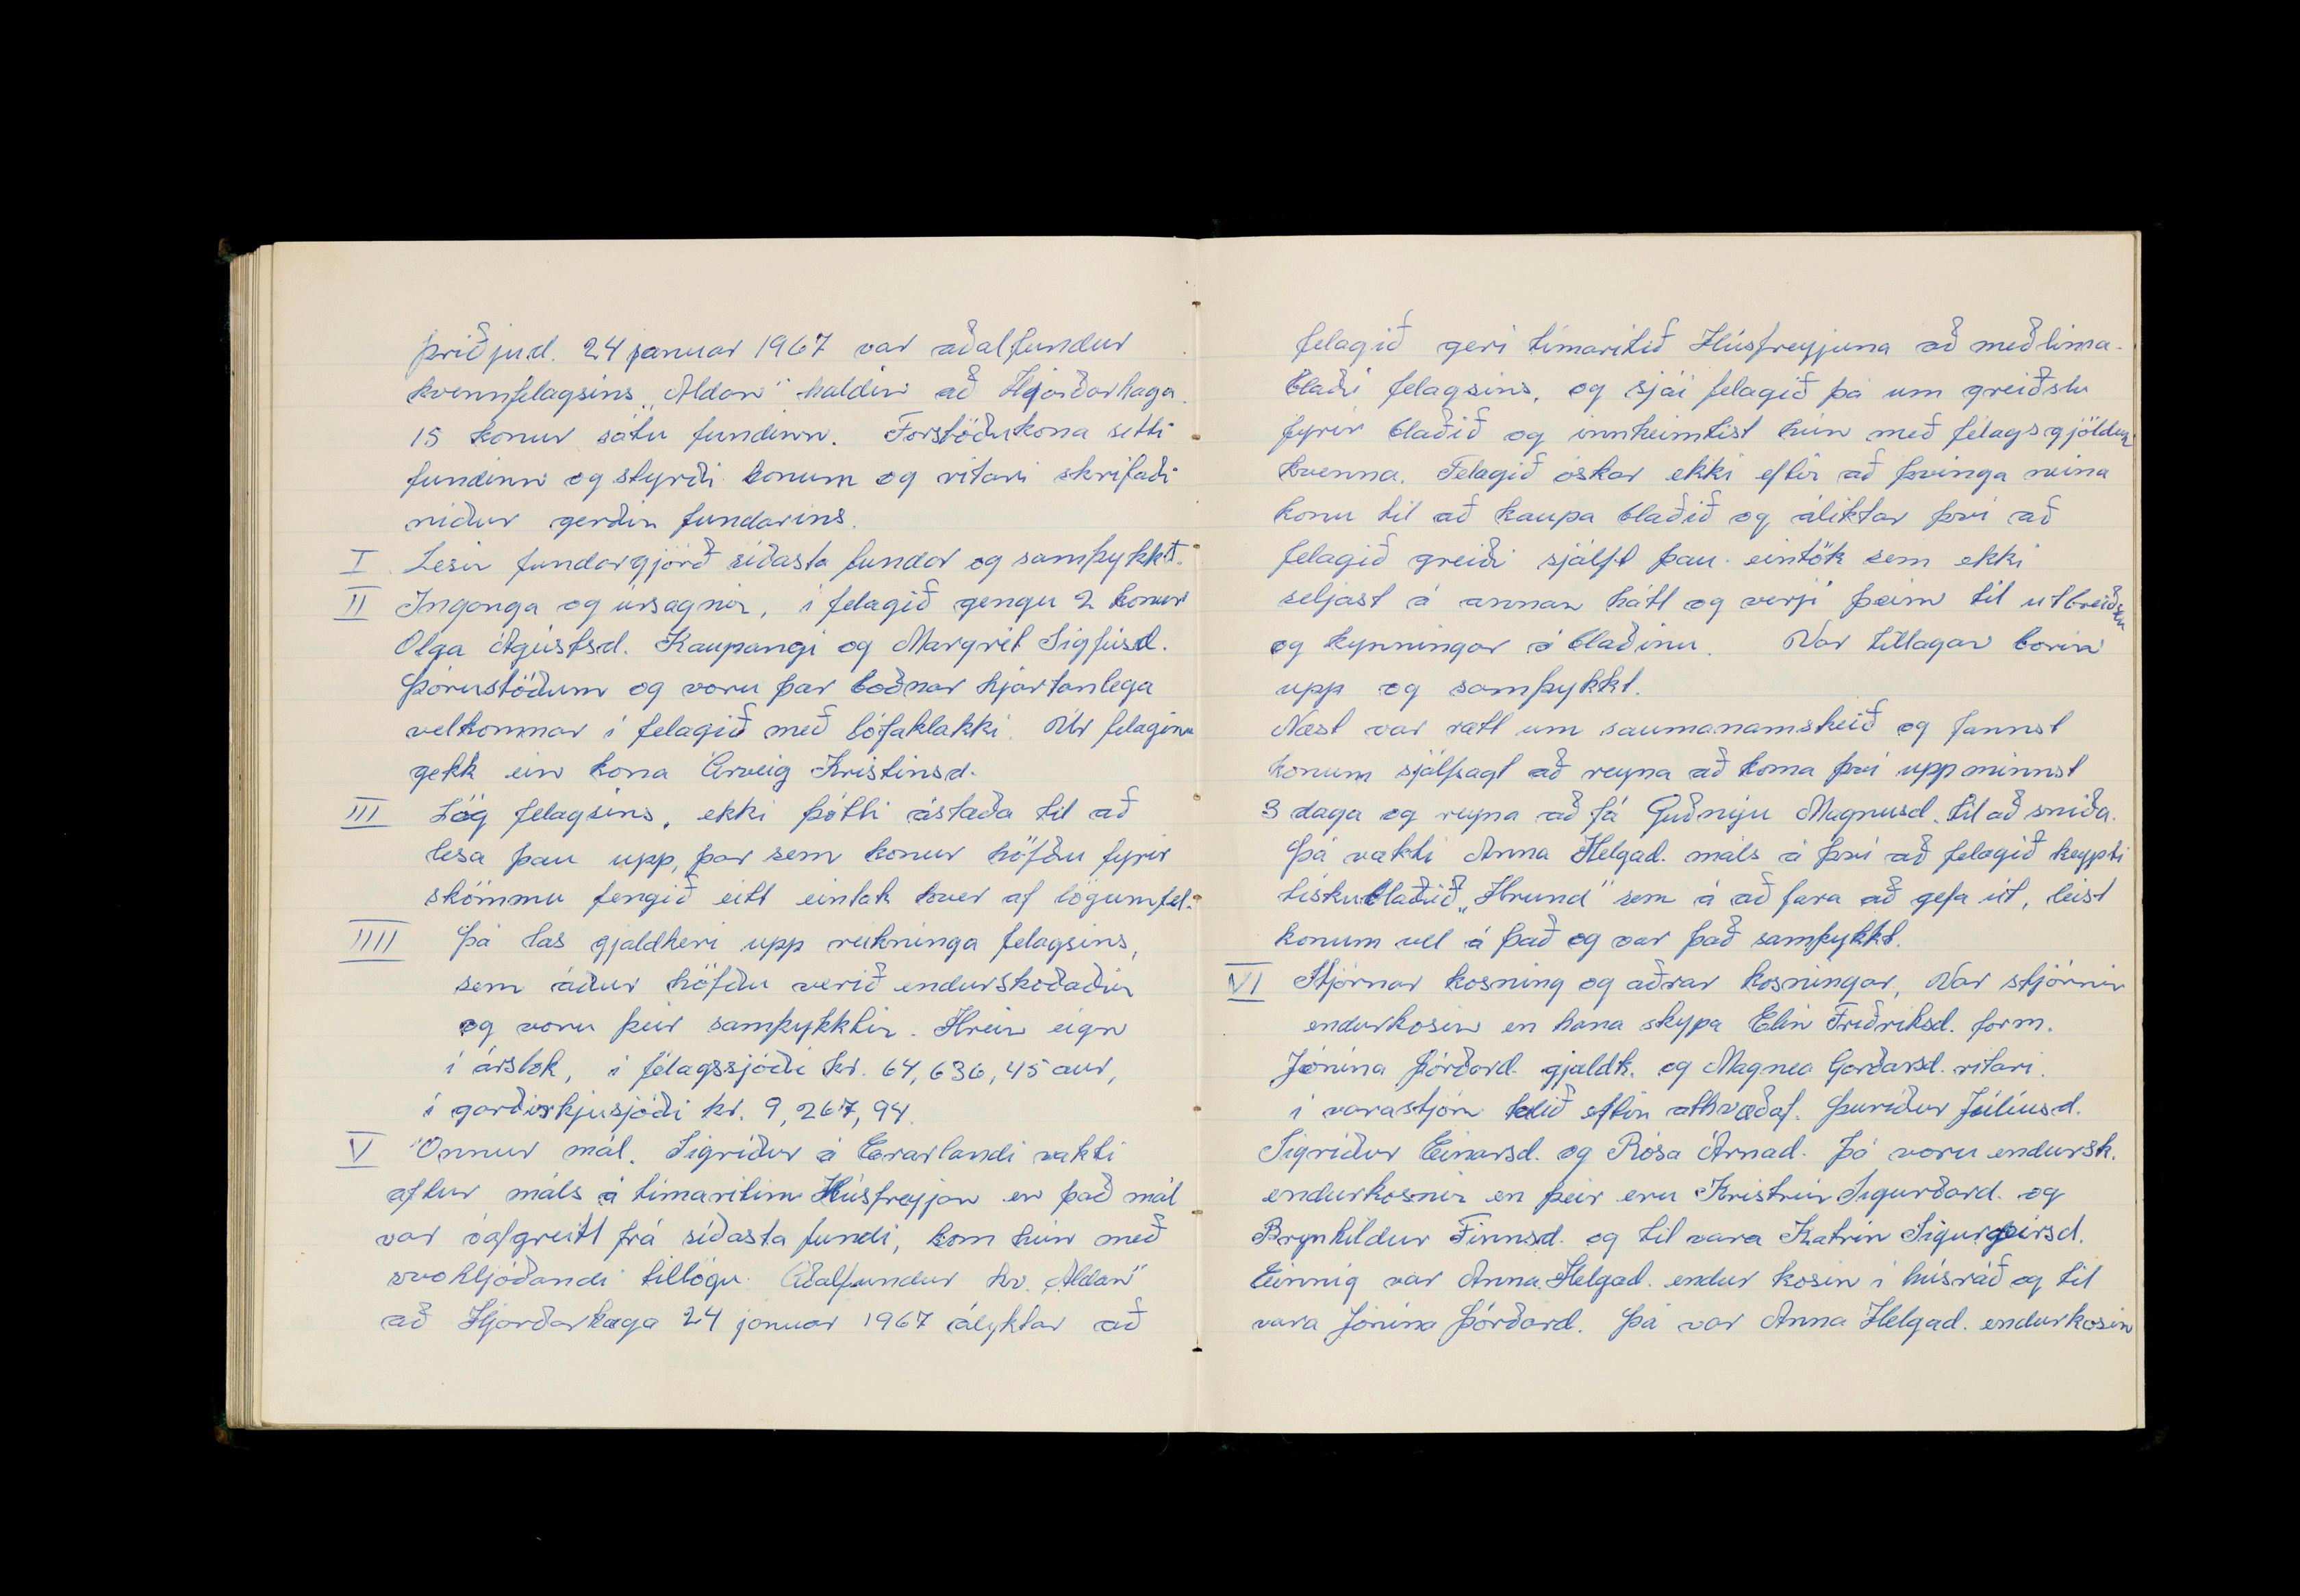 þriðjud. 24 januar 1967 var aðalfundur
kvennfelagsins „Aldan" haldin að Hjarðarhaga.
15 konur sátu fundinn. Forstöðukona setti
fundinn og styrði honum og ritari skrifaði
niður gerðir fundarins.
I Lesin fundargjörð síðasta fundar og samþykkt.
II Innganga og úrsagnir, í felagið gengu 2 konur
Olga Ágústsd. Kaupangi og Margrét Sigfúsd.
Þórustöðum og voru þar boðnar hjartanlega
velkomnar í felagið með lófaklakki. Úr felaginu
gekk ein kona Arveig Kristinsd.
III Lög felagsins, ekki þótti ástæða til að
lesa þau upp, þar sem konur höfðu fyrir
skömmu fengið eitt eintak hver af lögum fel.
IIII Þá las gjaldkeri upp reikninga felagsins,
sem áður höfðu verið endurskoðaðir
og voru þeir samþykktir. Hrein eign
í árslok, í félagssjóði kr. 64,636,45 aur,
í garðyrkjusjóði kr. 9,267,94.
V Önnur mál. Sigríður á vakti
aftur máls á tímaritinu Húsfreyjan en það mál
var óafgreitt frá síðasta fundi, kom hún með
svohljóðandi tillögu. Aðalfundur kv. „Aldan"
að Hjarðarhaga 24 januar 1967 ályktar að
felagið geri tímaritið Húsfreyjuna að meðlima-
blaði felagsins, og sjái felagið þá um greiðslu
fyrir blaðið og innheimtist hún með félagsgjöldum
kvenna. Felagið óskar ekki eftir að þvinga neina
konu til að kaupa blaðið og áliktar því að
felagið greiði sjálft þau eintök sem ekki
seljast á annan hátt og verji þeim til utbreiðslu
og kynningar á blaðinu. Var tillagan borin
upp og samþykkt.
Næst var rætt um saumanamskeið og fannst
konum sjálfsagt að reyna að koma því upp minnst
3 daga og reyna að fá Guðnýju Magnusd. til að sníða.
Þá vakti Anna Helgad. máls á því að felagið keypti
tískublaðið „Hrund" sem á að fara að gefa út, leist
konum vel á það og var það samþykkt.
VI Stjórnar kosning og aðrar kosningar, Var stjórnin
endurkosin en hana skypa Elin Friðriksd. form.
Jónína Þórðard. gjaldk. og Magnea Garðarsd. ritari.
í varastjórn Þuríður Júlíusd.
Sigríður Einarsd. og Rósa Árnad. Þá voru endursk.
endurkosnir en þeir eru Kristrún Sigurðard. og
Brynhildur Finnsd. og til vara Katrín Sigurgeirsd.
Einnig var Anna Helgad. endur kosin í húsráð og til
vara Jónína Þórðard. Þá var Anna Helgad. endurkosin